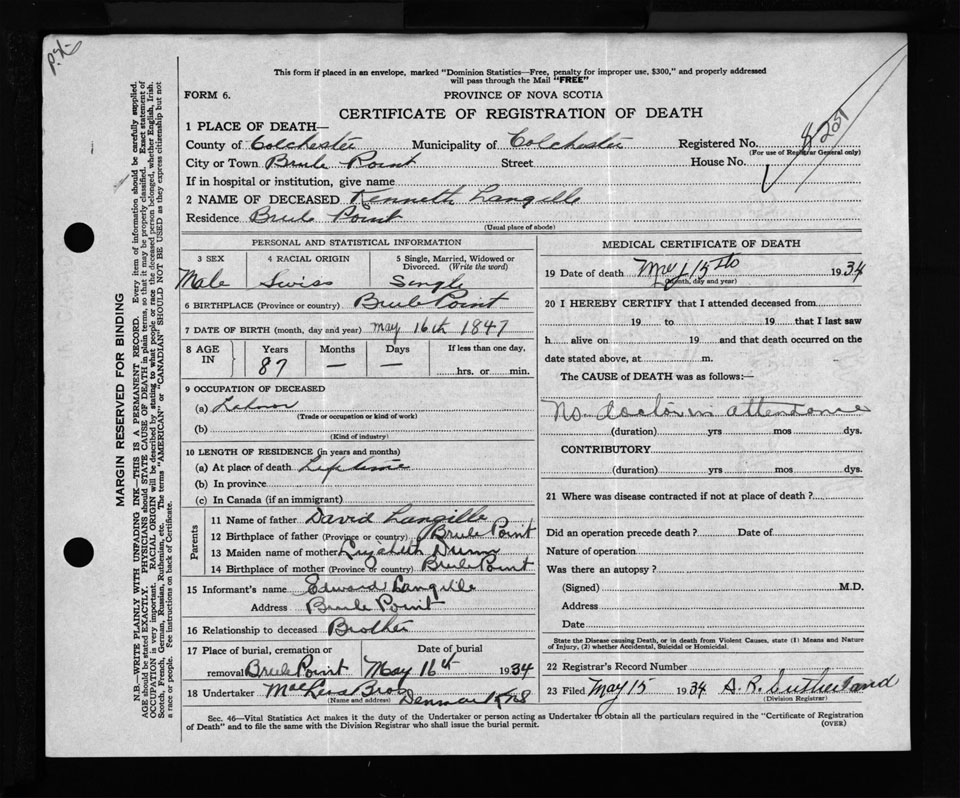 P.X.
This form if placed in an envelope, marked "Dominion Statistics—Free, penalty for improper use, $300," and properly addressed
will pass through the Mail "FREE"
FORM 6.
PROVINCE OF NOVA SCOTIA
CERTIFICATE OF REGISTRATION OF DEATH
1 PLACE OF DEATH—
County of Colchester Municipality of Colchester Registered No. 8209
(For use of Registrar General only)
City or Town Brule Point Street House No.
If in hospital or institution, give name
2 NAME OF DECEASED Kenneth Langille
Residence Brule Point
(Usual place of abode)
PERSONAL AND STATISTICAL INFORMATION
3 SEX 4 RACIAL ORIGIN 5 Single, Married, Widowed or
Divorced. (Write the word)
Male Swiss Single
6 BIRTHPLACE (Province or country) Brule Point
7 DATE OF BIRTH (month, day and year) May 16th 1847
8 AGE IN Years Months Days If less than one day,
87 — — hrs. or min.
9 OCCUPATION OF DECEASED
(a) Labour
(Trade or occupation or kind of work)
(b)
(Kind of industry)
10 LENGTH OF RESIDENCE (in years and months)
(a) At place of death Lifetime
(b) In province
(c) In Canada (if an immigrant)
Parents
11 Name of father David Langille
12 Birthplace of father (Province or country) Brule Point
13 Maiden name of mother Lizabeth
14 Birthplace of mother (Province or country) Brule Point
15 Informant's name Edward Langille
Address Brule Point
16 Relationship to deceased Brother
17 Place of burial, cremation or Date of burial
removal Brule Point May 16th 1934
18 Undertaker Bros Denmark NS
(Name and address)
MEDICAL CERTIFICATE OF DEATH
19 Date of death May 15th 1934
(Month, day and year)
20 I HEREBY CERTIFY that I attended deceased from
19 to 19 that I last saw
h alive on 19 and that death occurred on the
date stated above, at m.
The CAUSE of DEATH was as follows:—
No doctor in attendance
(duration) yrs mos dys.
CONTRIBUTORY
(duration) yrs mos dys.
21 Where was disease contracted if not at place of death?
Did an operation precede death? Date of
Nature of operation
Was there an autopsy?
(Signed) M.D.
Address
Date
State the Disease causing Death, or in death from Violent Causes, state (1) Means and Nature
of Injury, (2) whether Accidental, Suicidal or Homicidal.
22 Registrar's Record Number
23 Filed May 15 1934 A. R. Sutherland
(Division Registrar)
Sec. 46—Vital Statistics Act makes it the duty of the Undertaker or person acting as Undertaker to obtain all the particulars required in the "Certificate of Registration
of Death" and to file the same with the Division Registrar who shall issue the burial permit. (OVER)
MARGIN RESERVED FOR BINDING
N.B.—WRITE PLAINLY WITH UNFADING INK—THIS IS A PERMANENT RECORD. Every item of information should be carefully supplied.
AGE should be stated EXACTLY. PHYSICIANS should STATE CAUSE OF DEATH in plain terms, so that it may be properly classified. Exact statement of
OCCUPATION is very important. RACIAL ORIGIN will be described by stating to what people or race the deceased person belonged, whether English, Irish,
Scotch, French, German, Russian, Ruthenian, etc. The terms "AMERICAN" or "CANADIAN" SHOULD NOT BE USED as they express citizenship but not
a race or people. Fee instructions on back of Certificate.